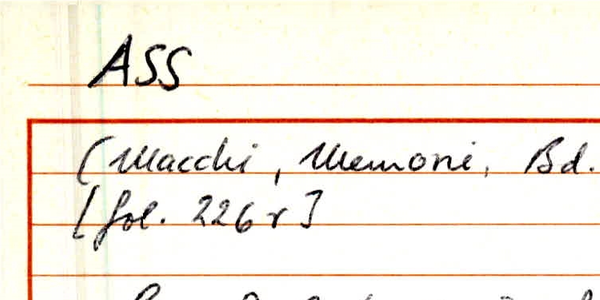 ASS
(Macchi, Memorie, Bd.
[fol. 226 r]